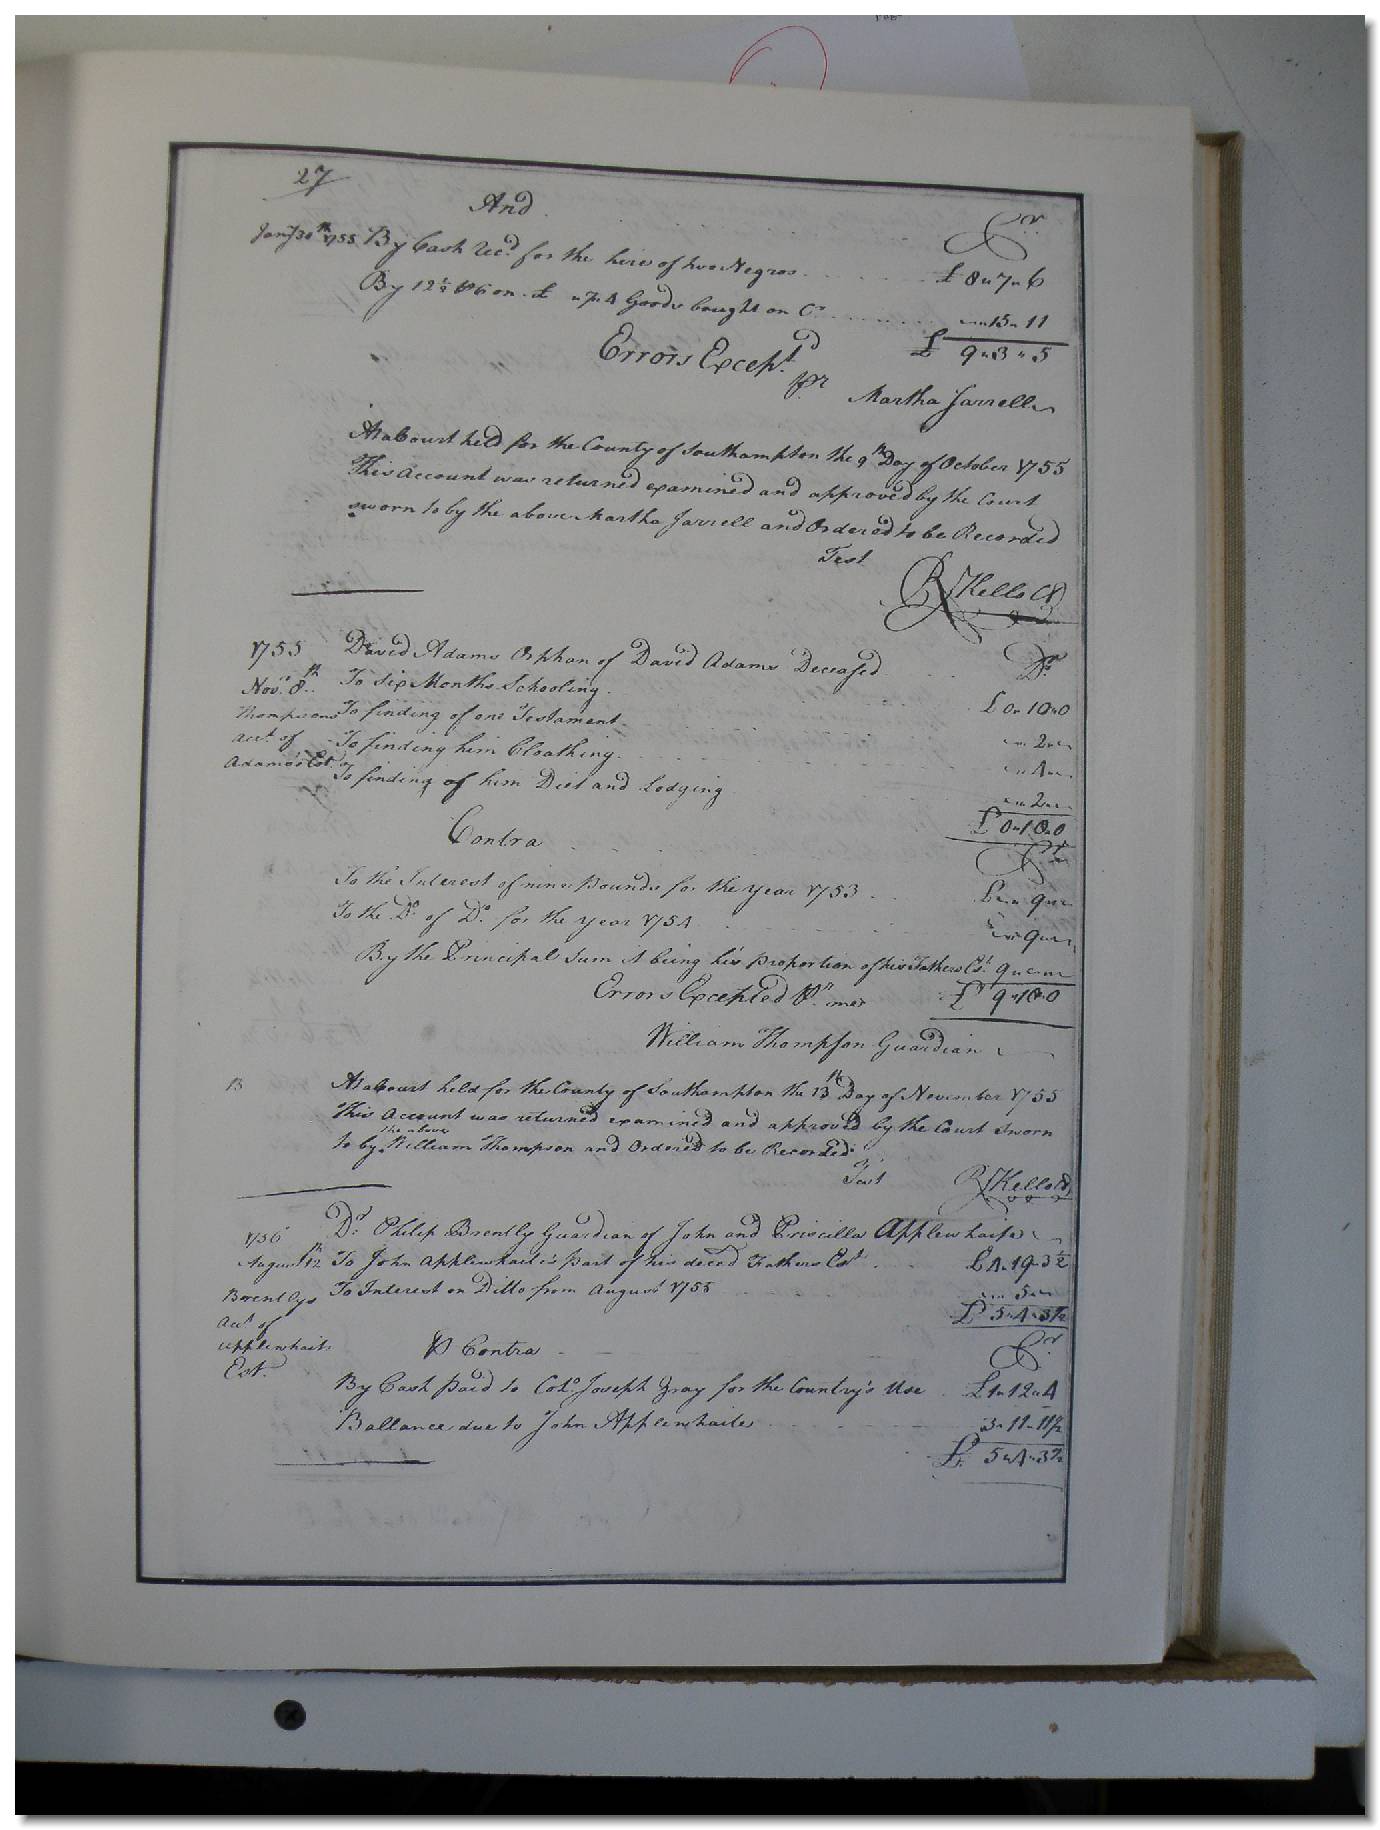 27
And
Cr.
Jany 30th 1755 By Cash Recd for the hire of two Negros £ 8 " 7 " 6
By 12½ on £ " 7 " 4 Goods bought on Cr " 15 " 11
£ 9 " 3 " 5
Errors Exceptd
pr
Martha Jarrell
At a Court held for the County of Southampton the 9th Day of October 1755
This Account was returned examined and approved by the Court
sworn to by the above Martha Jarrell and Ordered to be Recorded
Test
R Kello Ck
1755 David Adams Orphan of David Adams Deceased Dr
Novr. 8th To Six Months Schooling £ 0 " 10 " 0
Thompsons To finding of one Testament " 2 "
acct. of To finding him Cloathing " 4 "
Adams's Est. To finding of him Diet and Lodging " 2 "
£ 0 " 18 " 0
Contra Cr
To the Interest of nine Pounds for the year 1753 £ " 9 "
To the Do. of Do. for the year 1754 " 9 "
By the Principal Sum it being his proportion of his Fathers Est. 9 " "
Errors Excepted Pr. me £ 9 " 18 " 0
William Thompson Guardian
13 At a Court held for the County of Southampton the 13th Day of November 1755
This Account was returned examined and approved by the Court Sworn
the above
to by William Thompson and Ordered to be Recorded
Test
R Kello Ck
1756 Dr. Philip Brently Guardian of John and Priscilla Applewhaite
August 12th To John Applewhaite's part of his deced Fathers Est. £ 4 " 19 " 3½
Brentlys To Interest on Ditto from August 1755 " 5 "
acct. of £ 5 " 4 " 3½
Applewhaits
Est.
P Contra Cr
By Cash paid to Colo. Joseph Gray for the Country's Use £ 1 " 12 " 4
Ballance due to John Applewhaite 3 " 11 " 11½
£ 5 " 4 " 3½